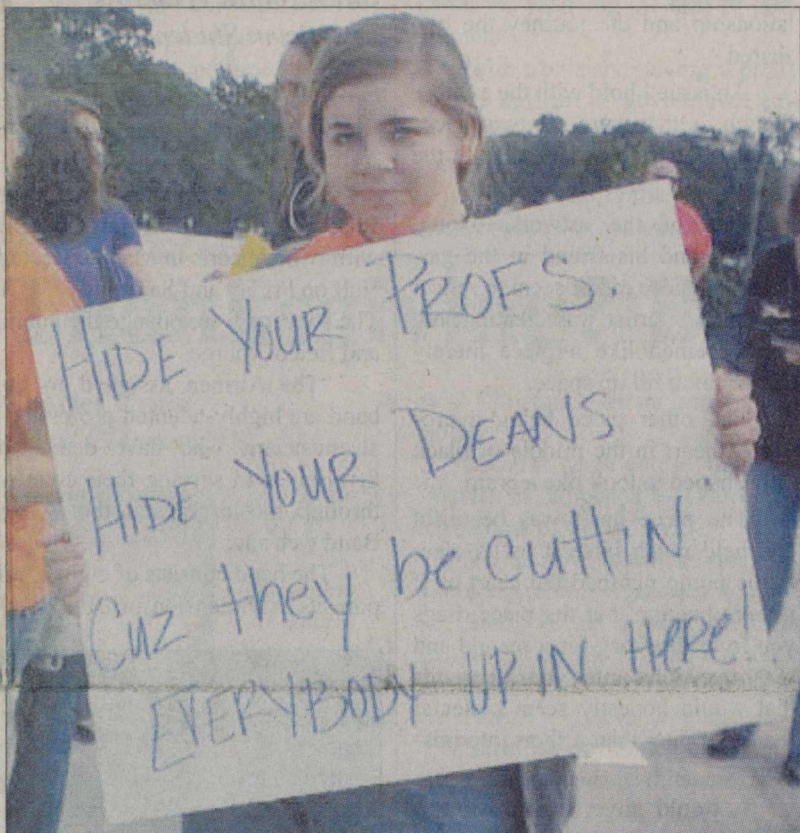 HIDE YOUR PROFS.
HIDE YOUR DEANS
CUZ they be CUttIN
EVERYBODY UP IN HERE!